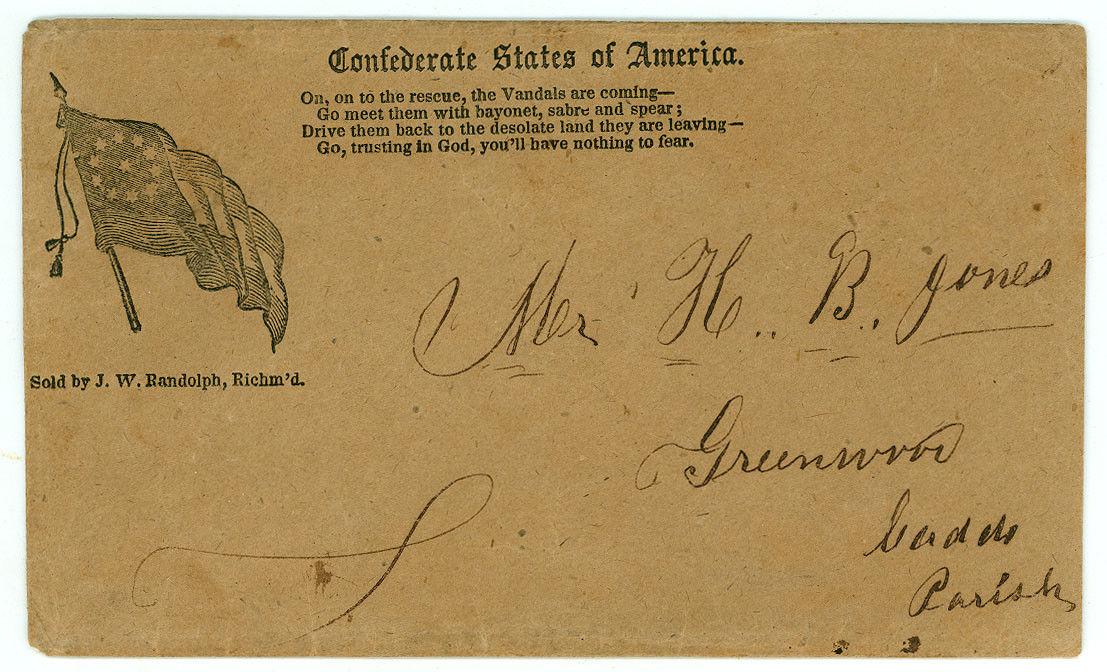 Confederate States of America.
On, on to the rescue, the Vandals are coming—
Go meet them with bayonet, sabre and spear;
Drive them back to the desolate land they are leaving—
Go, trusting in God, you'll have nothing to fear.
Sold by J. W. Randolph, Richm'd.
Mr H. B. Jones
Greenwood
Caddo
Parish